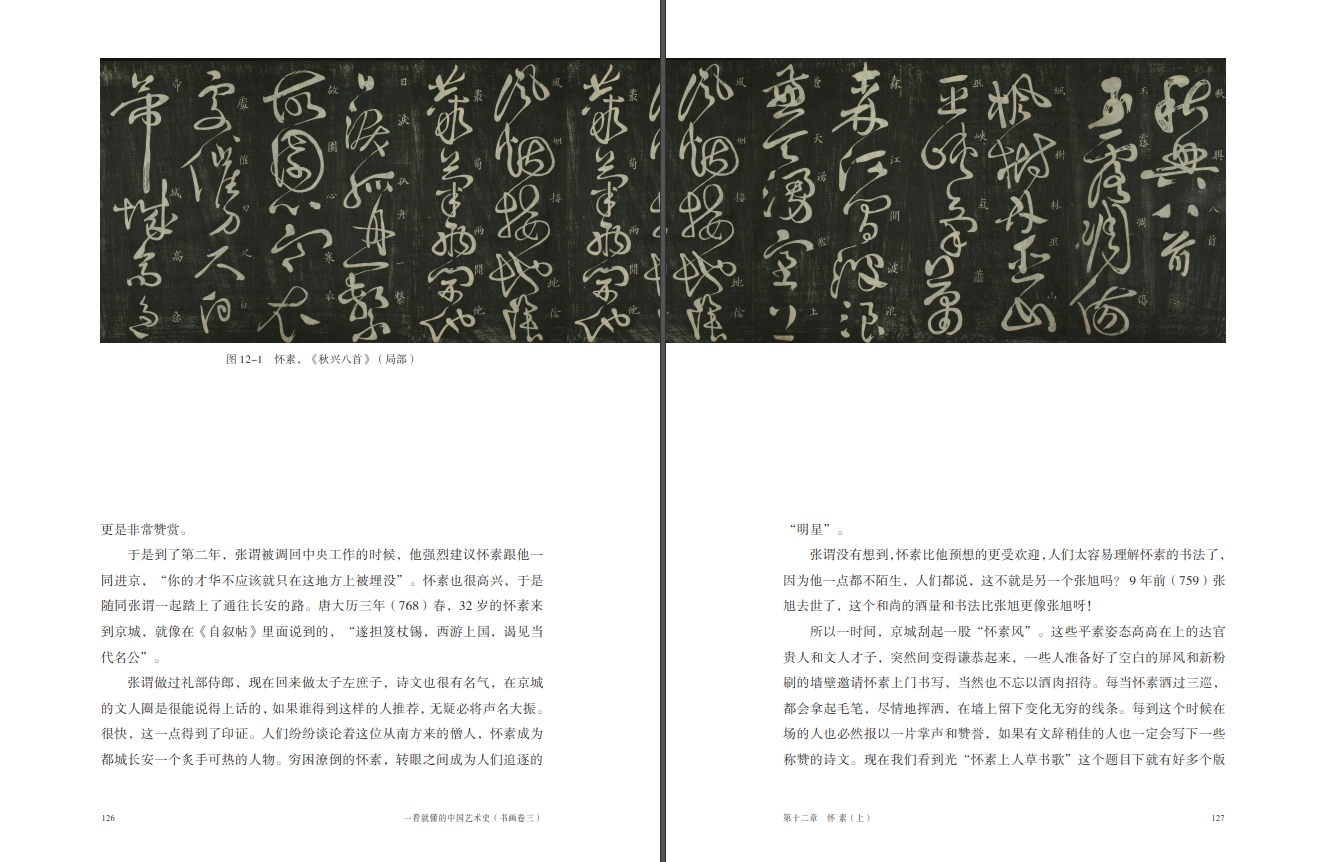 秋興八首
玉露凋傷
楓樹林巫山
巫峽氣蕭
森江間波浪
兼天湧塞上
風烟接地陰
叢菊兩開他
風烟接地陰
叢菊兩開他
日淚孤舟一繫
故園心寒衣
處催刀尺白
帝城高急
图 12–1 怀素，《秋兴八首》（局部）
更是非常赞赏。
于是到了第二年，张谓被调回中央工作的时候，他强烈建议怀素跟他一
同进京，“你的才华不应该就只在这地方上被埋没”。怀素也很高兴，于是
随同张谓一起踏上了通往长安的路。唐大历三年（768）春，32 岁的怀素来
到京城，就像在《自叙帖》里面说到的，“遂担笈杖锡，西游上国，谒见当
代名公”。
张谓做过礼部侍郎，现在回来做太子左庶子，诗文也很有名气，在京城
的文人圈是很能说得上话的，如果谁得到这样的人推荐，无疑必将声名大振。
很快，这一点得到了印证。人们纷纷谈论着这位从南方来的僧人，怀素成为
都城长安一个炙手可热的人物。穷困潦倒的怀素，转眼之间成为人们追逐的
126
一看就懂的中国艺术史（书画卷三）
“明星”。
张谓没有想到，怀素比他预想的更受欢迎，人们太容易理解怀素的书法了，
因为他一点都不陌生，人们都说，这不就是另一个张旭吗？ 9 年前（759）张
旭去世了，这个和尚的酒量和书法比张旭更像张旭呀！
所以一时间，京城刮起一股“怀素风”。这些平素姿态高高在上的达官
贵人和文人才子，突然间变得谦恭起来，一些人准备好了空白的屏风和新粉
刷的墙壁邀请怀素上门书写，当然也不忘以酒肉招待。每当怀素酒过三巡，
都会拿起毛笔，尽情地挥洒，在墙上留下变化无穷的线条。每到这个时候在
场的人也必然报以一片掌声和赞誉，如果有文辞稍佳的人也一定会写下一些
称赞的诗文。现在我们看到光“怀素上人草书歌”这个题目下就有好多个版
第十二章 怀 素（上）
127